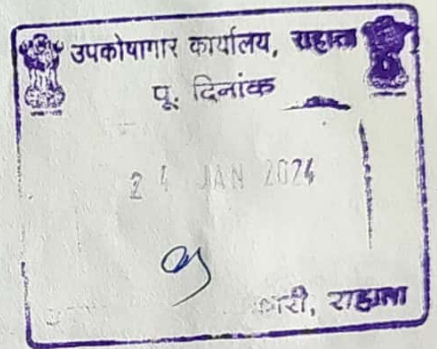 उपकोषागार कार्यालय, राहाता
पू. दिनांक
24 JAN 2024
कारी, राहाता